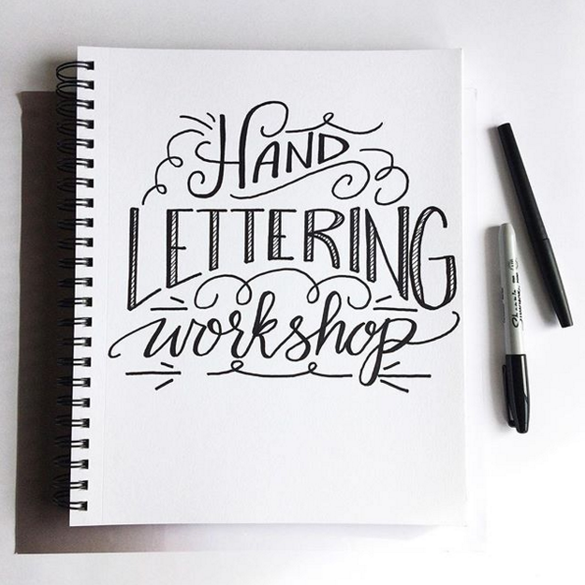 HAND
LETTERING
workshop
Sharpie